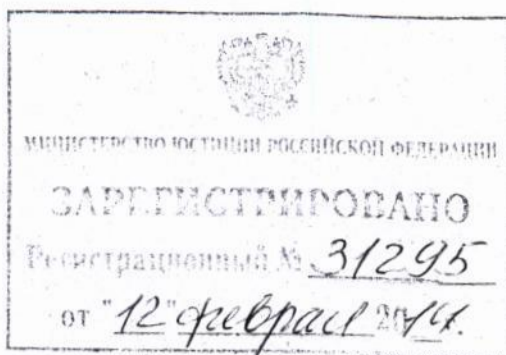 МИНИСТЕРСТВО ЮСТИЦИИ РОССИЙСКОЙ ФЕДЕРАЦИИ
ЗАРЕГИСТРИРОВАНО
Регистрационный № 31295
от "12" февраля 2014.